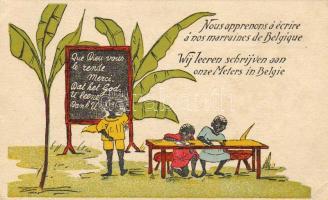 Nous apprenons à écrire
à nos marraines de Belgique
Wij leeren schrijven aan
onze Meters in Belgie
Que Dieu vous
le rende
Merci
Dat het God
U loone
Dank U